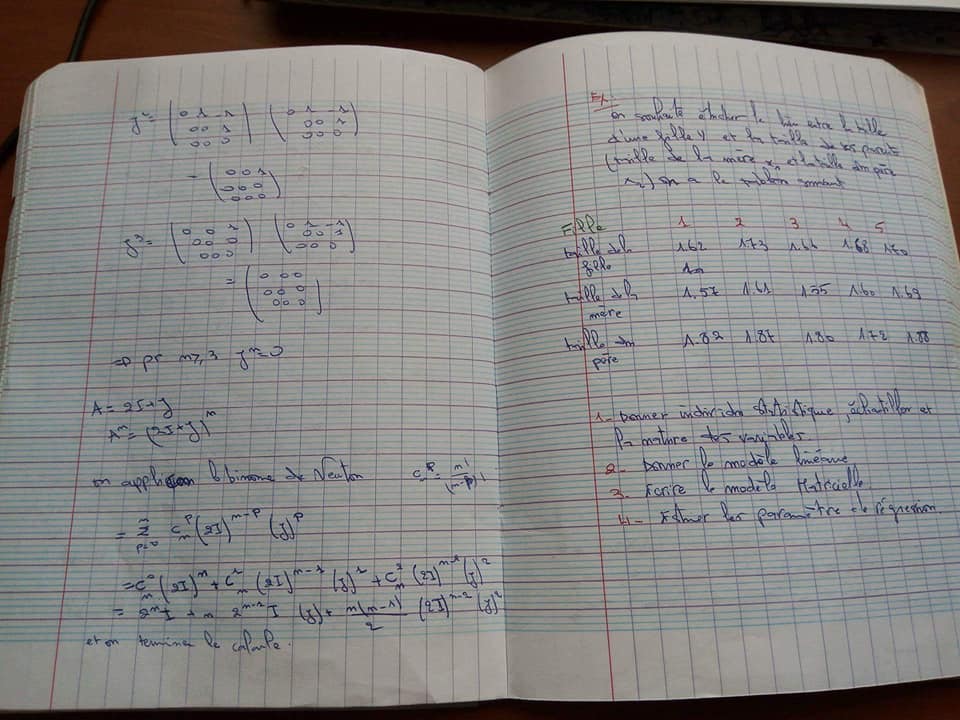 J² = ( 0 1 -1 ) ( 0 1 -1 )
0 0 1 0 0 1
0 0 0 0 0 0
= ( 0 0 1 )
0 0 0
0 0 0
J³ = ( 0 0 1 ) ( 0 1 -1 )
0 0 0 0 0 1
0 0 0 0 0 0
= ( 0 0 0 )
0 0 0
0 0 0
=> pr n ≥ 3 Jⁿ = 0
A = 2I + J
Aⁿ = (2I + J)ⁿ
on le binome de Newton
= Σ (p=0, n) Cₙᵖ (2I)ⁿ⁻ᵖ (J)ᵖ
= Cₙ⁰ (2I)ⁿ + Cₙ¹ (2I)ⁿ⁻¹ (J)¹ + Cₙ² (2I)ⁿ⁻² (J)²
= 2ⁿ I + n 2ⁿ⁻¹ I (J) + n(n-1)/2 (2I)ⁿ⁻² (J)²
et on termine le calcule.
Ex:
on souhaite étudier le lien entre la taille
d'une fille y et la taille de ses parents
(taille de la mère x₁ et la taille du père
x₂) on a le tableau suivant
Fille 1 2 3 4 5
taille de la 1.62 1.73 1.68
fille
taille de la 1.57 1.61 1.55 1.60 1.69
mère
taille du 1.82 1.87 1.80 1.72 1.88
père
1- Donner individu statistique, échantillon et
la nature des variables.
2- Donner le modèle linéaire
3- Ecrire le modèle Matricielle
4- Estimer les paramètre de régression.